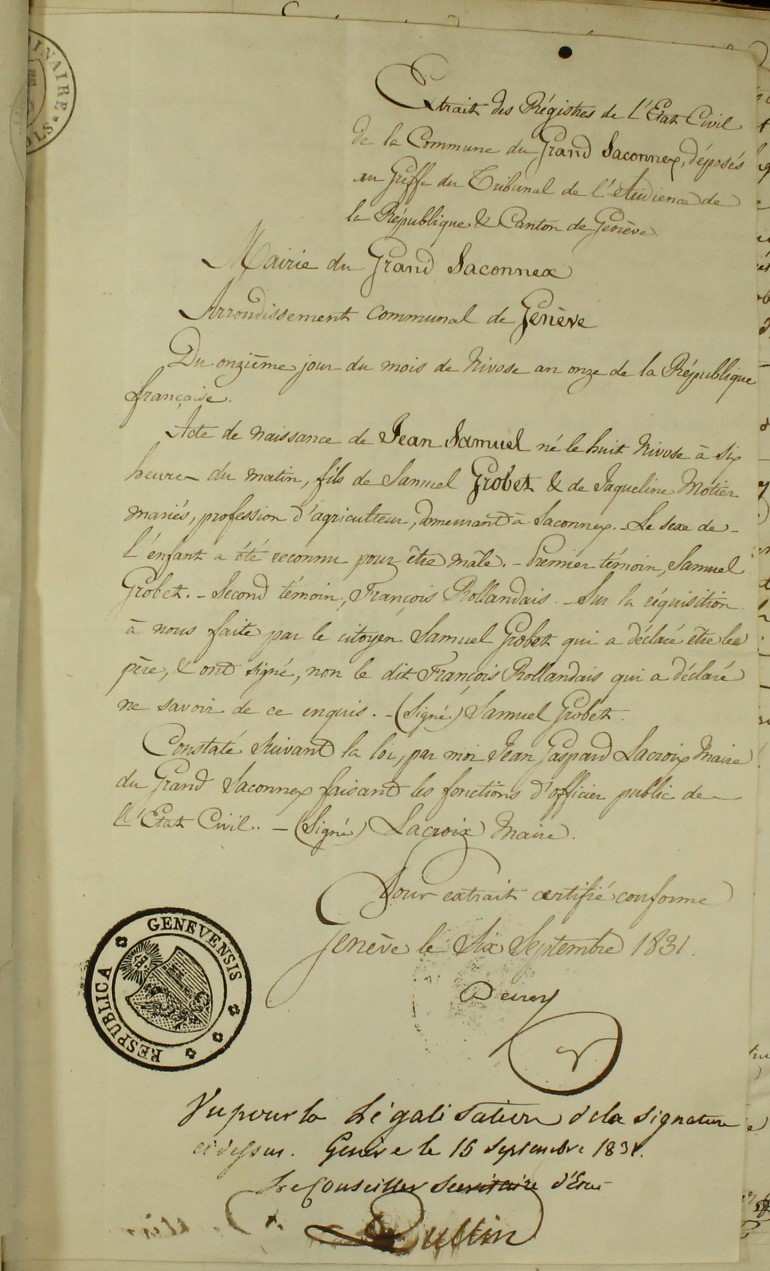 INAIRE
OLS
Extrait des Régistres de l'Etat Civil
de la Commune du Grand Saconnex, déposés
au Greffe du Tribunal de l'Audience de
la République & Canton de Genève
Mairie du Grand Saconnex
Arrondissement Communal de Genève
Du onzième jour du mois de Nivose an onze de la République
française.
Acte de naissance de Jean Samuel né le huit Nivose à six
heures du matin, fils de Samuel Grobet & de Jaqueline Motier
mariés, profession d'agriculteur, demeurant à Saconnex. - Le sexe de
l'enfant a été reconnu pour être mâle. - Premier témoin, Samuel
Grobet. - Second témoin, François Rollandais. - Sur la réquisition
à nous faite par le citoyen Samuel Grobet qui a déclaré être le
père, & ont signé, non le dit François Rollandais qui a déclaré
ne savoir de ce enquis. - (Signé) Samuel Grobet.
Constaté suivant la loi, par moi Jean Gaspard Lacroix Maire
du Grand Saconnex faisant les fonctions d'officier public de
l'Etat Civil. - (Signé) Lacroix Maire.
Pour extrait certifié conforme
Genève le Six Septembre 1831.
RESPUBLICA GENEVENSIS
Vu pour la légalisation de la signature
ci dessus. Genève le 15 Septembre 1831.
Le Conseiller Secrétaire d'Etat